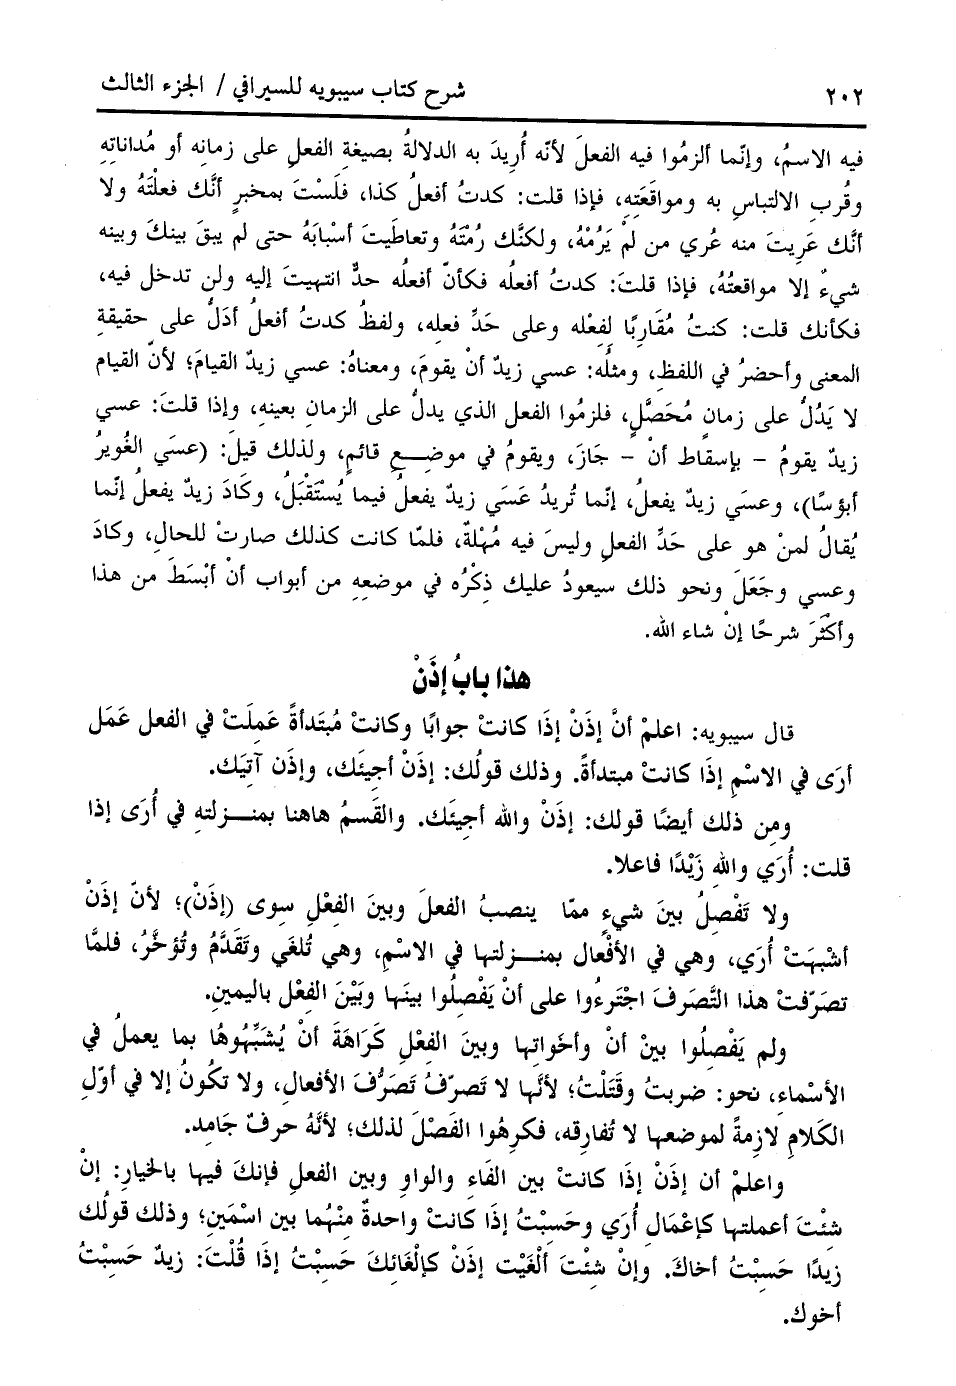 ٢٠٢ شرح كتاب سيبويه للسيرافي / الجزء الثالث
فيه الاسمُ، وإنّما ألزمُوا فيه الفعلَ لأنه أُريدَ به الدلالةُ بصيغة الفعلِ على زمانِه أو مُداناتِه
وقُربِ الالتباسِ به ومواقَعَتِه، فإذا قلت: كدتُ أفعلُ كذا، فلَسْتَ بمخبرٍ أنَّك فعلْتَهُ ولا
أنَّك عَرِيتَ منه عُري من لمْ يَرُمْهُ، ولكنَّك رُمْتَهُ وتعاطَيتَ أسْبابَهُ حتى لم يبقَ بينكَ وبينه
شيءٌ إلا مواقعتُهُ، فإذا قلتَ: كدتُ أفعلُه فكأنّ أفعله حدٌّ انتهيتَ إليه ولن تدخل فيه،
فكأنك قلت: كنتُ مُقَاربًا لِفِعْله وعلى حَدِّ فعلِه، ولفظُ كدتُ أفعلُ أدَلُّ على حقيقةِ
المعنى وأحضرُ في اللفظِ، ومثلُه: عسي زيدٌ أنْ يقومَ، ومعناهُ: عسي زيدٌ القيامَ؛ لأنّ القيام
لا يَدُلُّ على زمانٍ مُحَصَّلٍ، فلزمُوا الفعل الذي يدلُّ على الزمانِ بعينهِ، وإذا قلتَ: عسي
زيدٌ يقومُ – بإسقاط أنْ – جَازَ، ويقومُ في موضعِ قائمٍ، ولذلك قيلَ: (عسَي الغُويرُ
أبؤسًا)، وعسَي زيدٌ يفعلُ، إنّما تُريدُ عَسَي زيدٌ يفعلُ فيما يُسْتَقْبَلُ، وكَادَ زيدٌ يفعلُ إنّما
يُقالُ لمنْ هو على حَدِّ الفعلِ وليسَ فيه مُهْلةٌ، فلمّا كانت كذلك صارتْ للحالِ، وكادَ
وعسي وجَعَلَ ونحو ذلك سيعودُ عليك ذِكْرُه في موضعِهِ من أبواب أنْ أبْسَطَ من هذا
وأكْثَرَ شرحًا إنْ شاء الله.
هذا بابُ إذَنْ
قال سيبويه: اعلمْ أنَّ إذَنْ إذَا كانتْ جوابًا وكانتْ مُبْتَدأةً عَملَتْ في الفعل عَمَل
أرَى في الاسْمِ إذَا كانتْ مبتدأةً. وذلك قولُك: إذَنْ أجيئَك، وإذَن آتيَك.
ومن ذلك أيضًا قولك: إذَنْ والله أجيئَك. والقَسمُ هاهنا بمنزلته في أُرَى إذا
قلت: أُرَي واللهِ زَيْدًا فاعلا.
ولا تَفْصِلُ بينَ شيءٍ ممّا ينصبُ الفعلَ وبينَ الفِعْلِ سوى (إذَنْ)؛ لأنّ إذَنْ
أشْبَهَتْ أُرَي، وهي في الأفْعال بمنزلتها في الاسْمِ، وهي تُلغَي وتَقَدَّمُ وتُؤخَّرُ، فلمَّا
تصَرّفتْ هذا التَّصَرفَ اجْتَرءُوا على أنْ يَفْصِلُوا بينَها وبَيْنَ الفِعْل باليمينِ.
ولم يَفْصِلُوا بينْ أنْ وأخَواتِها وبينَ الفِعْلِ كَرَاهَةَ أنْ يُشَبِّهُوهُا بما يعملُ في
الأسْماءِ، نحو: ضربتُ وقَتَلْتُ؛ لأنَّها لا تَصرّفُ تَصَرُّفَ الأفعالِ، ولا تكُونُ إلا في أوّلِ
الكَلامِ لازمةً لموضعها لا تُفارقه، فكرِهُوا الفَصْلَ لذلك؛ لأنَّهُ حرفٌ جَامِد.
واعلمْ أن إذَنْ إذَا كانتْ بين الفَاءِ والواوِ وبين الفعلِ فإنكَ فيها بالخيارِ: إنْ
شئْتَ أعملتها كإعْمَالِ أُرَي وحَسِبْتُ إذَا كانتْ واحدةٌ منْهُما بين اسْمَينِ؛ وذلك قولُك
زيدًا حَسِبْتُ أخاكَ. وإنْ شئْتَ ألْغَيْت إذَنْ كإلْغَائِكَ حَسِبْتُ إذَا قُلْتَ: زيدٌ حَسِبْتُ
أخوك.